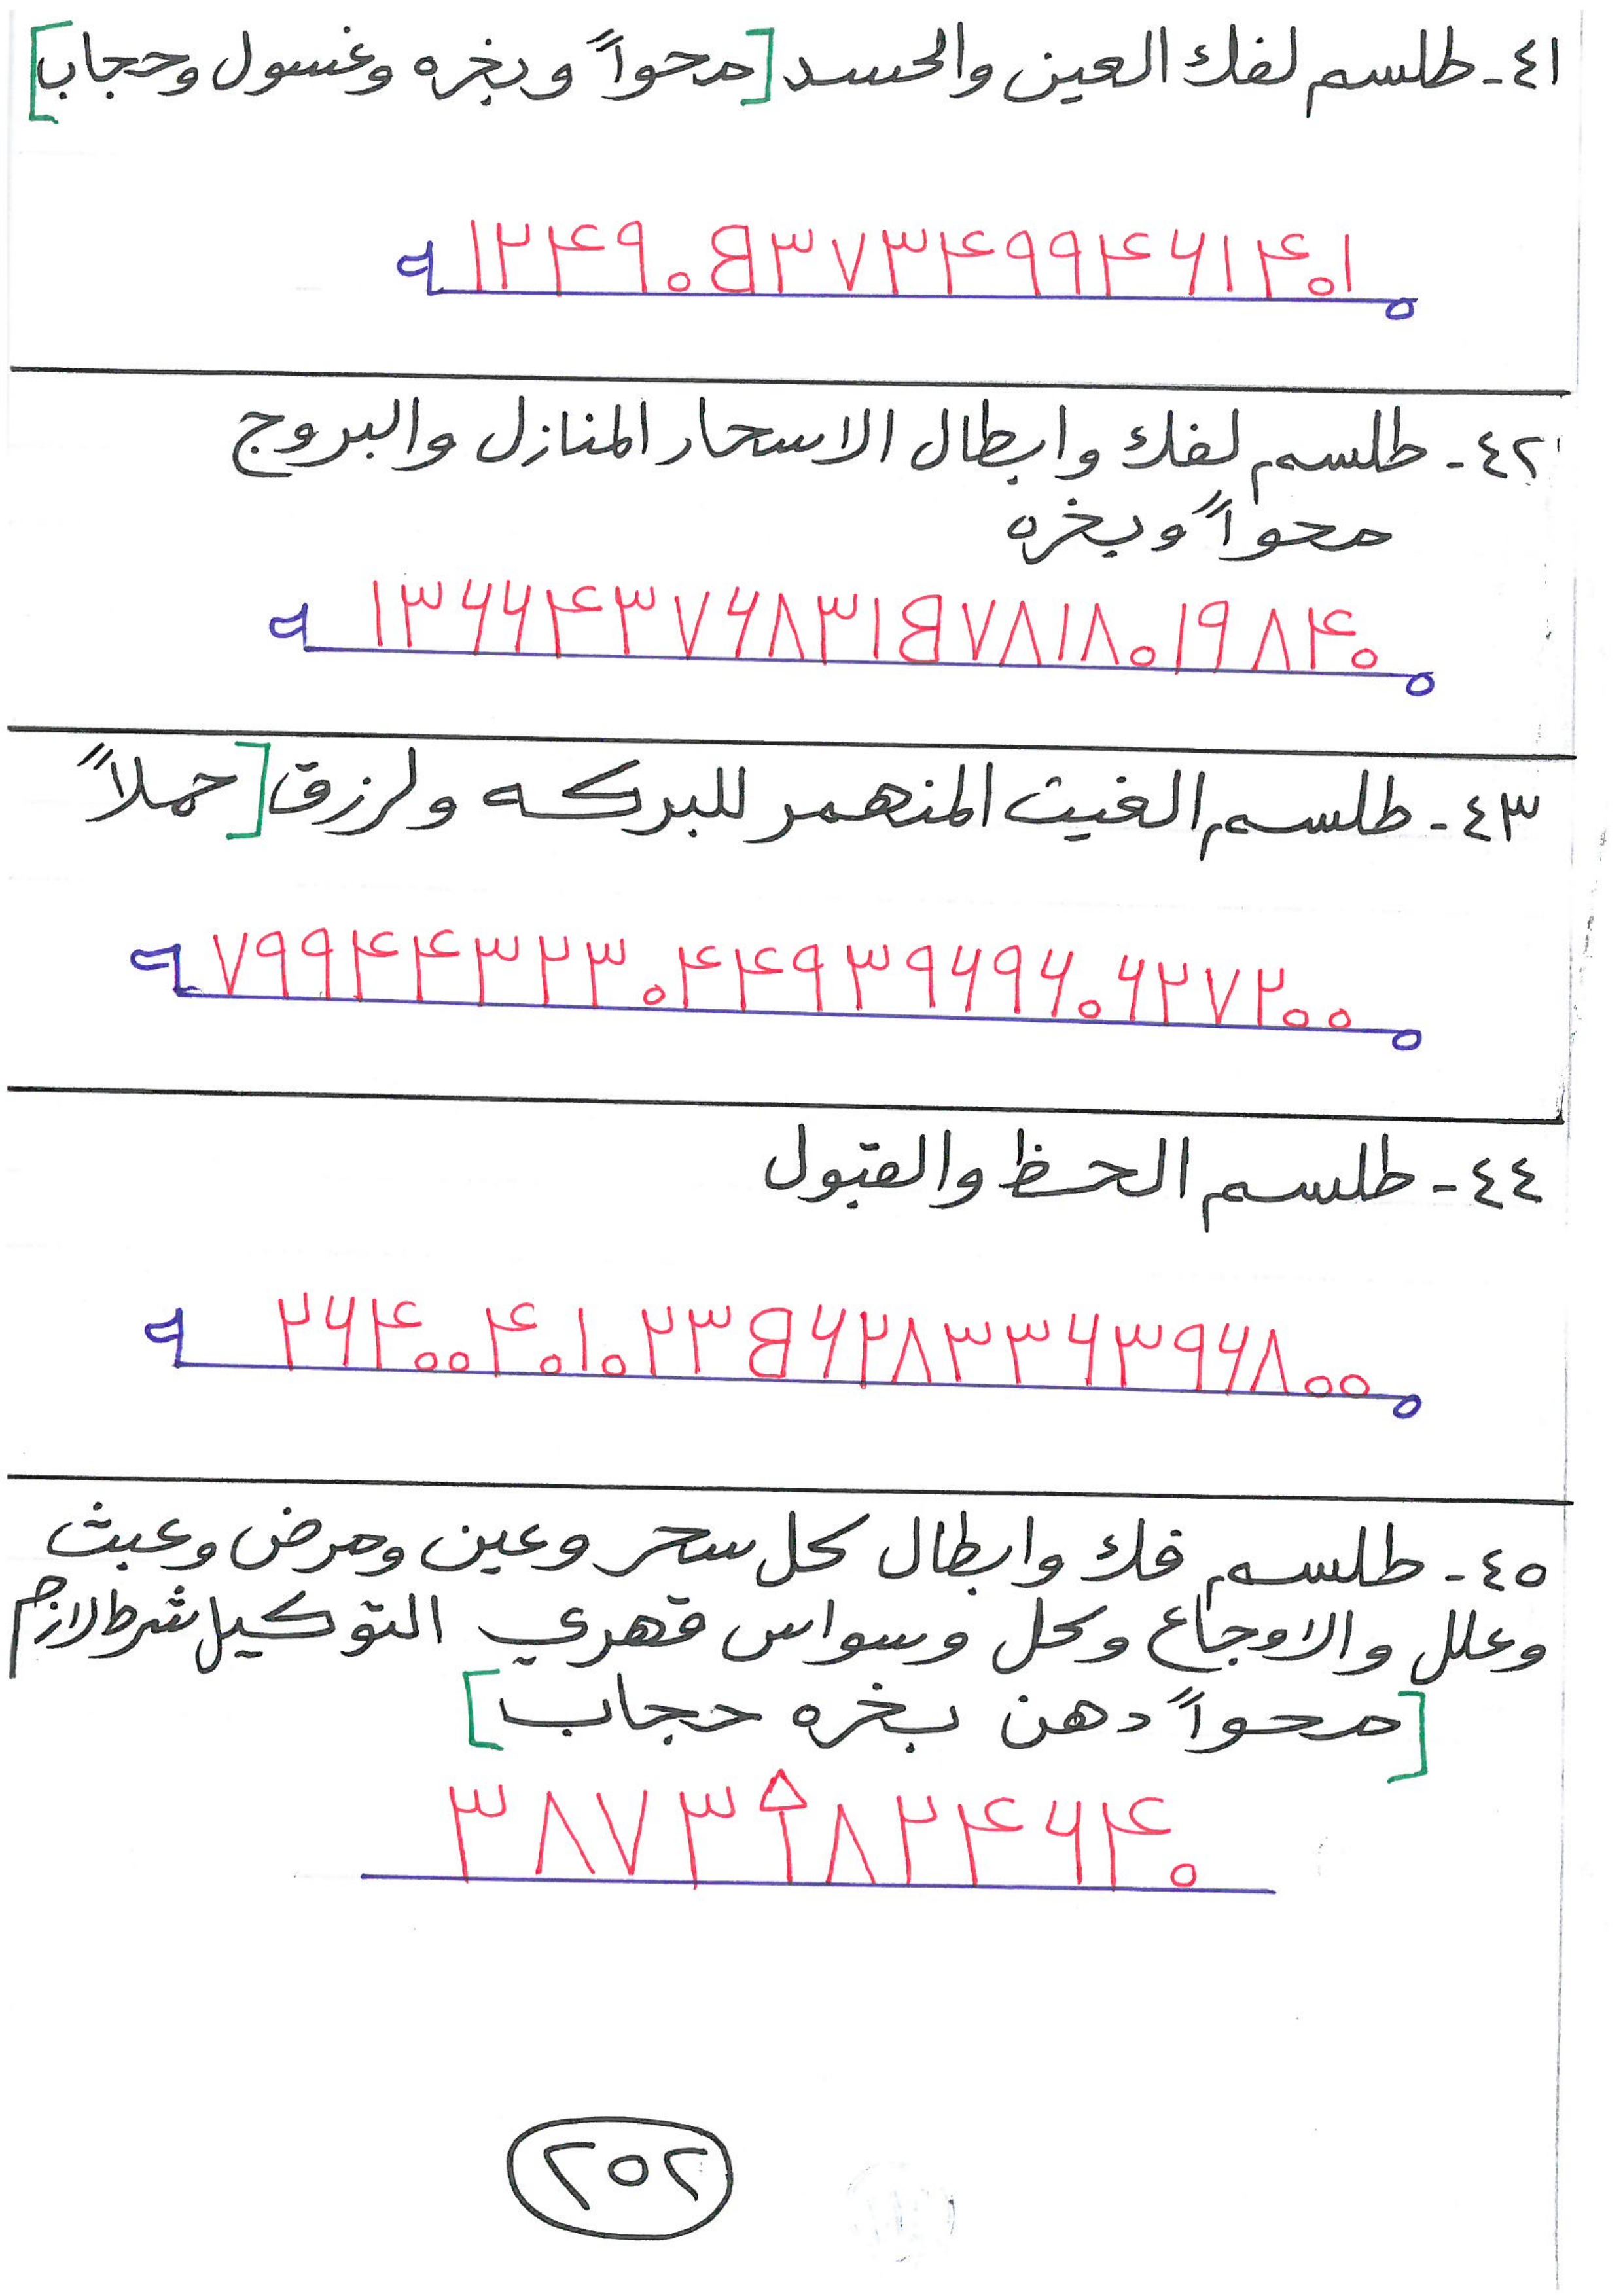 ٤١- طلسم لفك العين والحسد [محواً وبخره وغسول وحجاب]
١٢۴٩٠B٣٧٣۴٩٩۴۶١۴٠١
٤٢- طلسم لفك وابطال الاسحار المنازل والبروج
محواً وبخره
١٣۶۶۴٣٧۶٨٣١B٧٨١٨٠١٩٨۴٠
٤٣- طلسم الغيث المنهمر للبركه ولرزق [حملاً
٧٩٩۴۴٣٢٣٠۴۴٩٣٩۶٩۶٠۶٢٧٢٠٠
٤٤- طلسم الحظ والقبول
٢۶۴٠٠۴٠١٠٢٣B۶٢٨٣٣۶٣٩۶٨٠٠
٤٥- طلسم فك وابطال كل سحر وعين ومرض وعبث
وعلل والاوجاع وكل وسواس قهري التوكيل شرط لازم
[محواً دهن بخره حجاب]
٣٨٧٣ ٨٢۴۶۴٠
٢٥٢